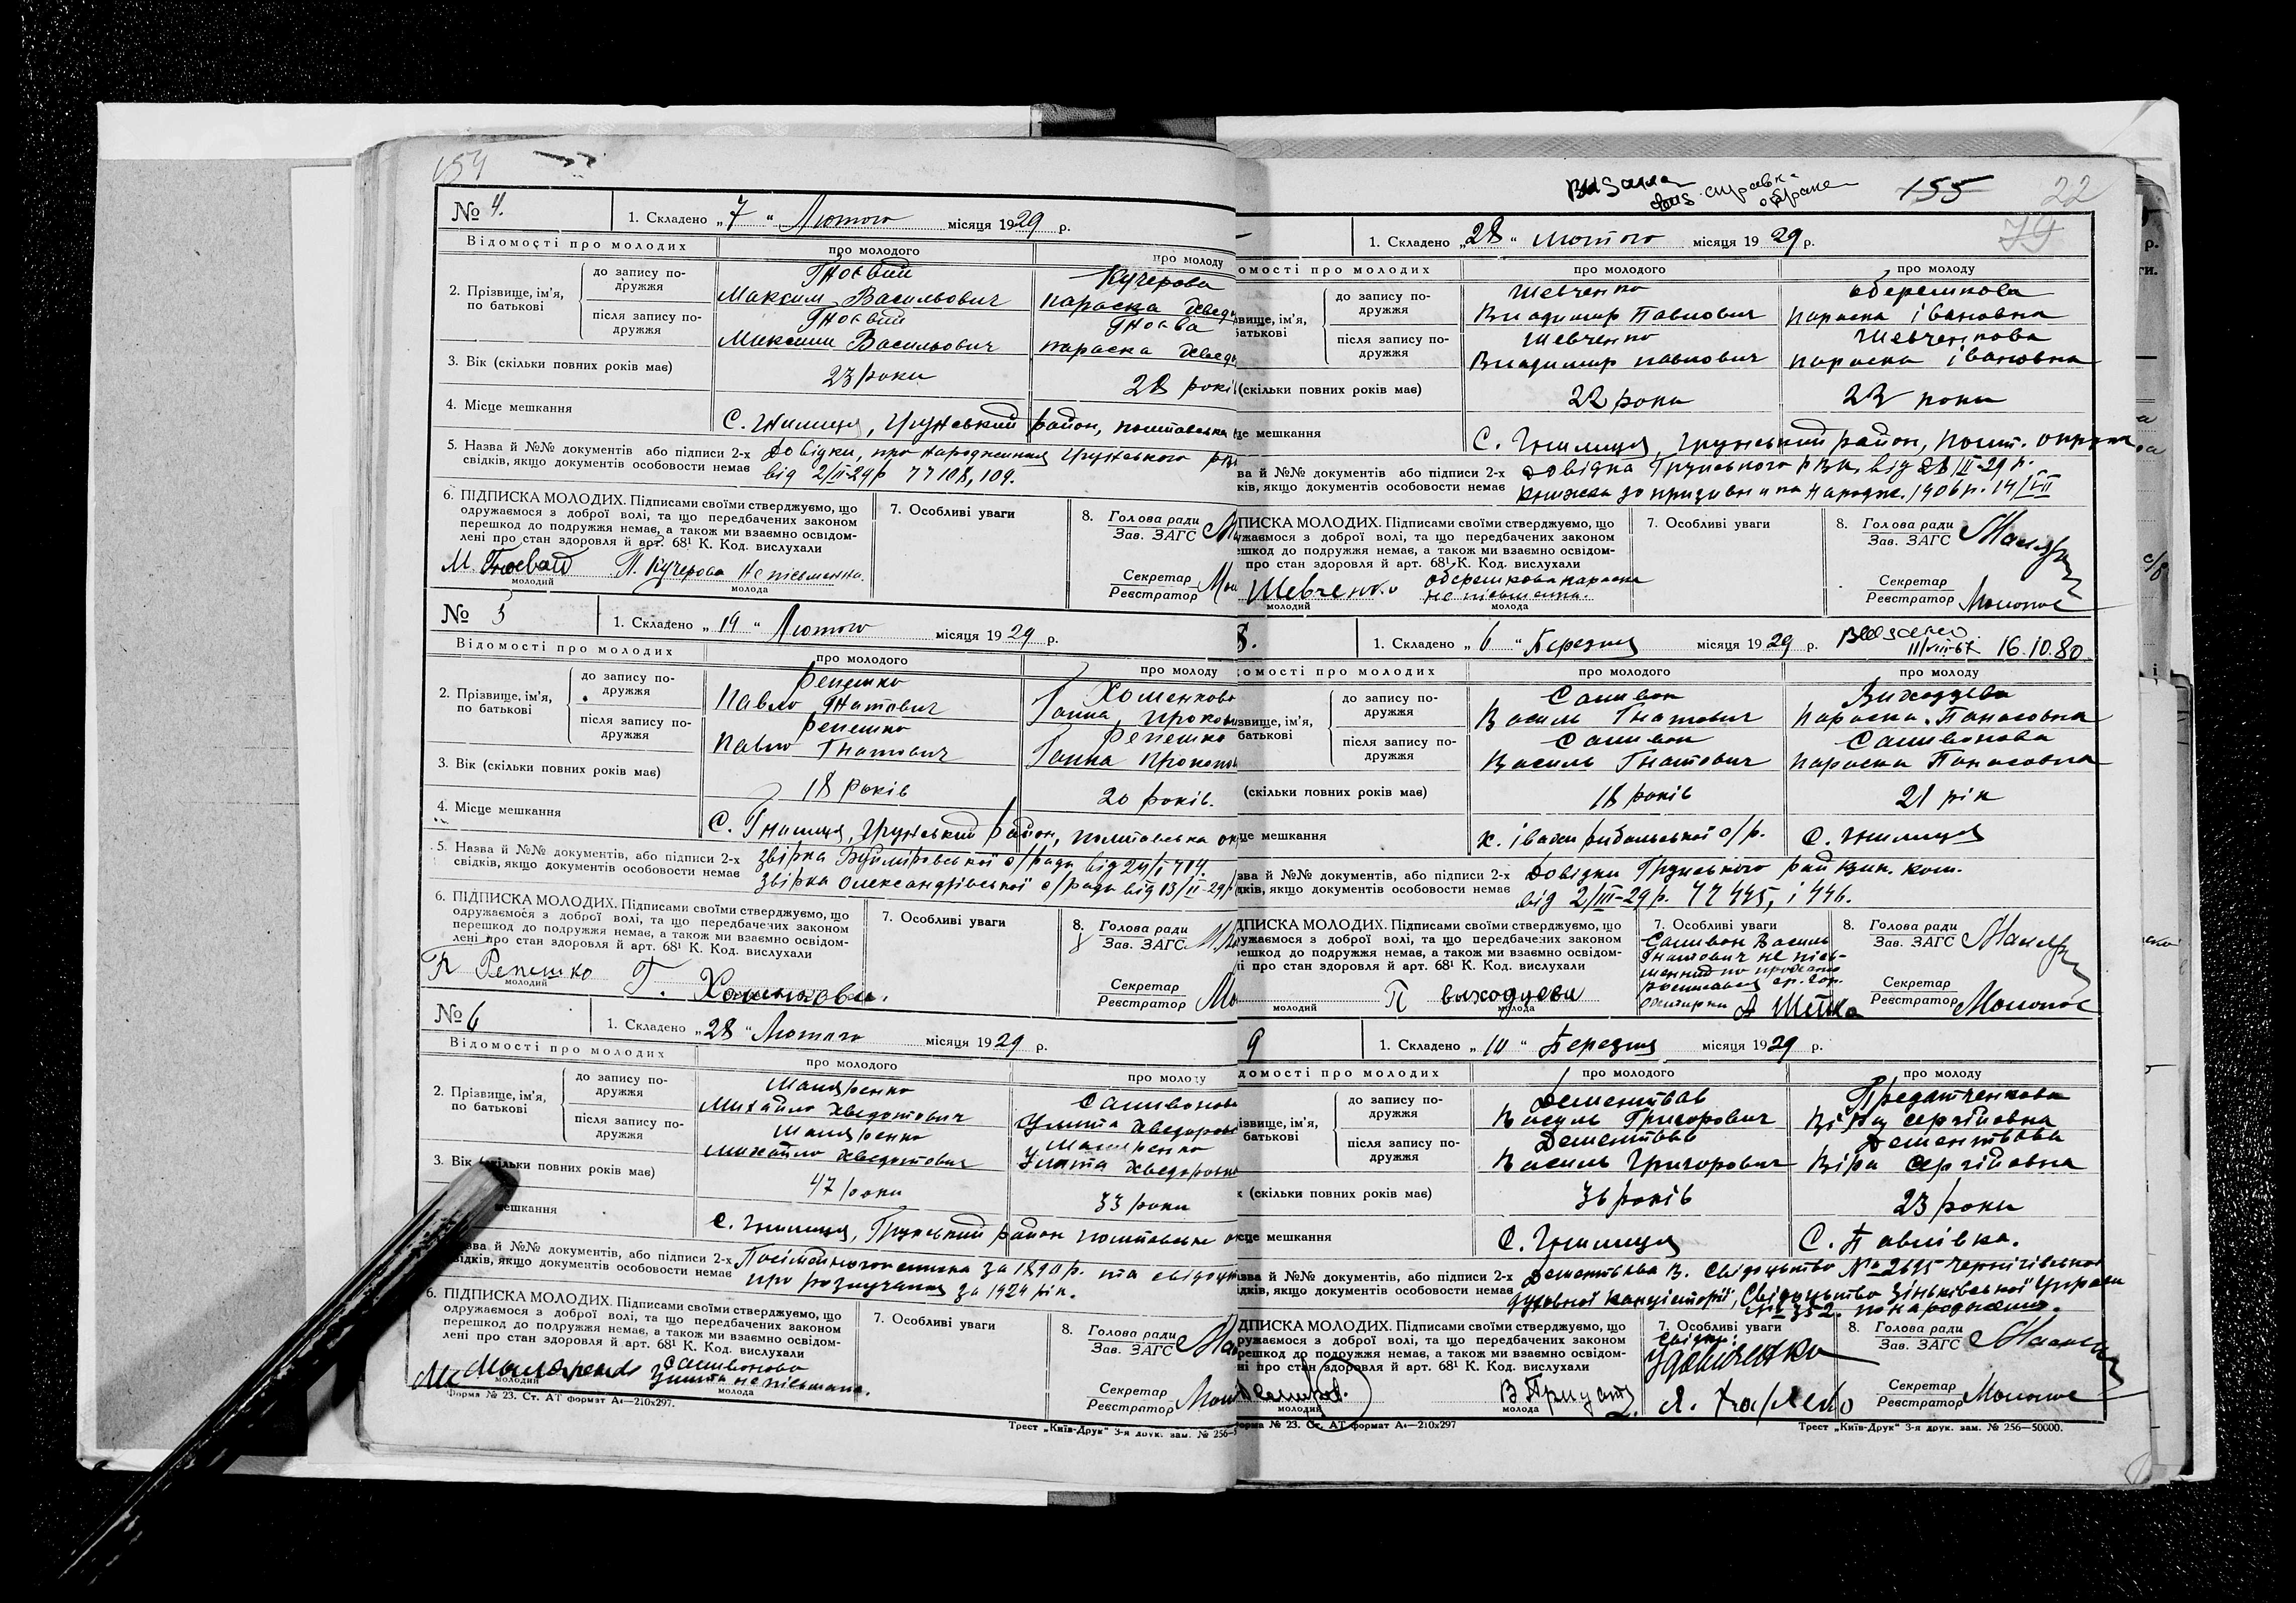 154
№ 4.
1. Складено „7“ Лютого місяця 1929 р.
Відомості про молодих
про молодого
про молоду
2. Прізвище, ім’я, по батькові
до запису по-
дружжя
Гноєвий
Максим Васильович
Кучерова
Параска Хведо
після запису по-
дружжя
Гноєвий
Максим Васильович
Гноєва
Параска Хведо
3. Вік (скільки повних років має)
23 роки
28 років
4. Місце мешкання
С. Гнилиця, Грунський район, полтавська
5. Назва й №№ документів або підписи 2-х
свідків, якщо документів особовости немає
Довідки, про народження Грунського рвк
від 2/II-29р 77 108, 109.
6. ПІДПИСКА МОЛОДИХ. Підписами своїми стверджуємо, що
одружаємося з доброї волі, та що передбачених законом
перешкод до подружжя немає, а також ми взаємно освідом-
лені про стан здоровля й арт. 68¹ К. Код. вислухали
М. Гноєвий П. Кучерова Неписьменна.
молодий
молода
7. Особливі уваги
8. Голова ради
Зав. ЗАГС
Секретар
Реєстратор
№ 5
1. Складено „14“ Лютого місяця 1929 р.
Відомості про молодих
про молодого
про молоду
2. Прізвище, ім’я,
по батькові
до запису по-
дружжя
Репешко
Павло Гнатович
Хоменкова
Ганна Проков
після запису по-
дружжя
Репешко
Павло Гнатович
Репешко
Ганна Прокопов
3. Вік (скільки повних років має)
18 років
20 років.
4. Місце мешкання
С. Гнилиця, Грунський район, полтавська ок
5. Назва й №№ документів, або підписи 2-х
свідків, якщо документів особовости немає
звірка Буймирівської с/ради від 24/I 714.
звірка Олександрівської с/ради від 13/II-29р
6. ПІДПИСКА МОЛОДИХ. Підписами своїми стверджуємо, що
одружаємося з доброї волі, та що передбачених законом
перешкод до подружжя немає, а також ми взаємно освідом-
лені про стан здоровля й арт. 68¹ К. Код. вислухали
П Репешко Г. Хоменкова.
молодий
7. Особливі уваги
8. Голова ради
Зав. ЗАГС
Секретар
Реєстратор
№ 6
1. Складено „28“ Лютого місяця 1929 р.
Відомості про молодих
про молодого
про молоду
2. Прізвище, ім’я,
по батькові
до запису по-
дружжя
Маляренко
Михайло Хведотович
Саливонова
Улита Хведоров
після запису по-
дружжя
Маляренко
Михайло Хведотович
Маляренко
Улита Хведоровн
3. Вік
повних років має)
47 роки
33 роки
мешкання
С. Гнилиця, Грунський район полтавське ок
й №№ документів, або підписи 2-х
свідків, якщо документів особовости немає
Посімейного списка за 1890р. та свідоцт
про розлучення за 1924 рік.
6. ПІДПИСКА МОЛОДИХ. Підписами своїми стверджуємо, що
одружаємося з доброї волі, та що передбачених законом
перешкод до подружжя немає, а також ми взаємно освідом-
лені про стан здоровля й арт. 68¹ К. Код. вислухали
Маляренко Саливонова
Улита неписьмена.
молодий
молода
7. Особливі уваги
8. Голова ради
Зав. ЗАГС
Секретар
Реєстратор
Форма № 23. Ст. АТ формат А₄—210х297.
Трест „Київ-Друк“ 3-я друк. зам. № 256—5
155
22
79
1. Складено „28“ Лютого місяця 1929 р.
омості про молодих
про молодого
про молоду
вище, ім’я,
батькові
до запису по-
дружжя
Шевченко
Владимир Павлович
Оберемкова
Параска Івановна
після запису по-
дружжя
Шевченко
Владимир Павлович
Шевченкова
Параска Івановна
(скільки повних років має)
22 роки
22 роки
це мешкання
С. Гнилиця, Грунський район, Полт. округа
ва й №№ документів або підписи 2-х
ків, якщо документів особовости немає
Довідка Грунського рвк, від 28/II-29 р.
книжка до призивн
ПИСКА МОЛОДИХ. Підписами своїми стверджуємо, що
ужаємося з доброї волі, та що передбачених законом
ешкод до подружжя немає, а також ми взаємно освідом-
про стан здоровля й арт. 68¹ К. Код. вислухали
Шевченко Оберемкова Параска
не письмена.
молодий
молода
7. Особливі уваги
8. Голова ради
Зав. ЗАГС
Секретар
Реєстратор
8.
1. Складено „6“ Березня місяця 1929 р.
16.10.80
омості про молодих
про молодого
про молоду
звище, ім’я,
батькові
до запису по-
дружжя
Саливон
Василь Гнатович
Виходцева
Параска Панасовна
після запису по-
дружжя
Саливон
Василь Гнатович
Саливонова
Параска Панасовна
(скільки повних років має)
18 років
21 рік
це мешкання
х. Іваки рибальської с/р.
С. Гнилиця
зва й №№ документів, або підписи 2-х
дків, якщо документів особовости немає
Довідки Грунського рай вик. ком.
від 2/III-29 р. 77 445, і 446.
ДПИСКА МОЛОДИХ. Підписами своїми стверджуємо, що
ружаємося з доброї волі, та що передбачених законом
решкод до подружжя немає, а також ми взаємно освідом-
і про стан здоровля й арт. 68¹ К. Код. вислухали
П выходцева
молодий
молода
7. Особливі уваги
Саливон Василь
Гнатович не пись-
8. Голова ради
Зав. ЗАГС
Секретар
Реєстратор
9
1. Складено „10“ Березня місяця 1929 р.
домості про молодих
про молодого
про молоду
ізвище, ім’я,
батькові
до запису по-
дружжя
Дементьєв
Василь Григорович
Предатченкова
Віра Сергіївна
після запису по-
дружжя
Дементьєв
Василь Григорович
Дементьєва
Віра Сергіївна
к (скільки повних років має)
36 років
23 роки
сце мешкання
С. Гнилиця
С. Павлівка.
зва й №№ документів, або підписи 2-х
ідків, якщо документів особовости немає
Дементьєва В. Свідоцтво № 2695 Чернігівської
духовної канцісторії, Свідоцтво Зіньківської Управи
№ 352. по народженю.
ДПИСКА МОЛОДИХ. Підписами своїми стверджуємо, що
ружаємося з доброї волі, та що передбачених законом
решкод до подружжя немає, а також ми взаємно освідом-
ні про стан здоровля й арт. 68¹ К. Код. вислухали
молодий
молода
7. Особливі уваги
Свідки:
8. Голова ради
Зав. ЗАГС
Секретар
Реєстратор
орма № 23. Ст. АТ формат А₄—210х297
Трест „Київ-Друк“ 3-я друк. зам. № 256—50000.